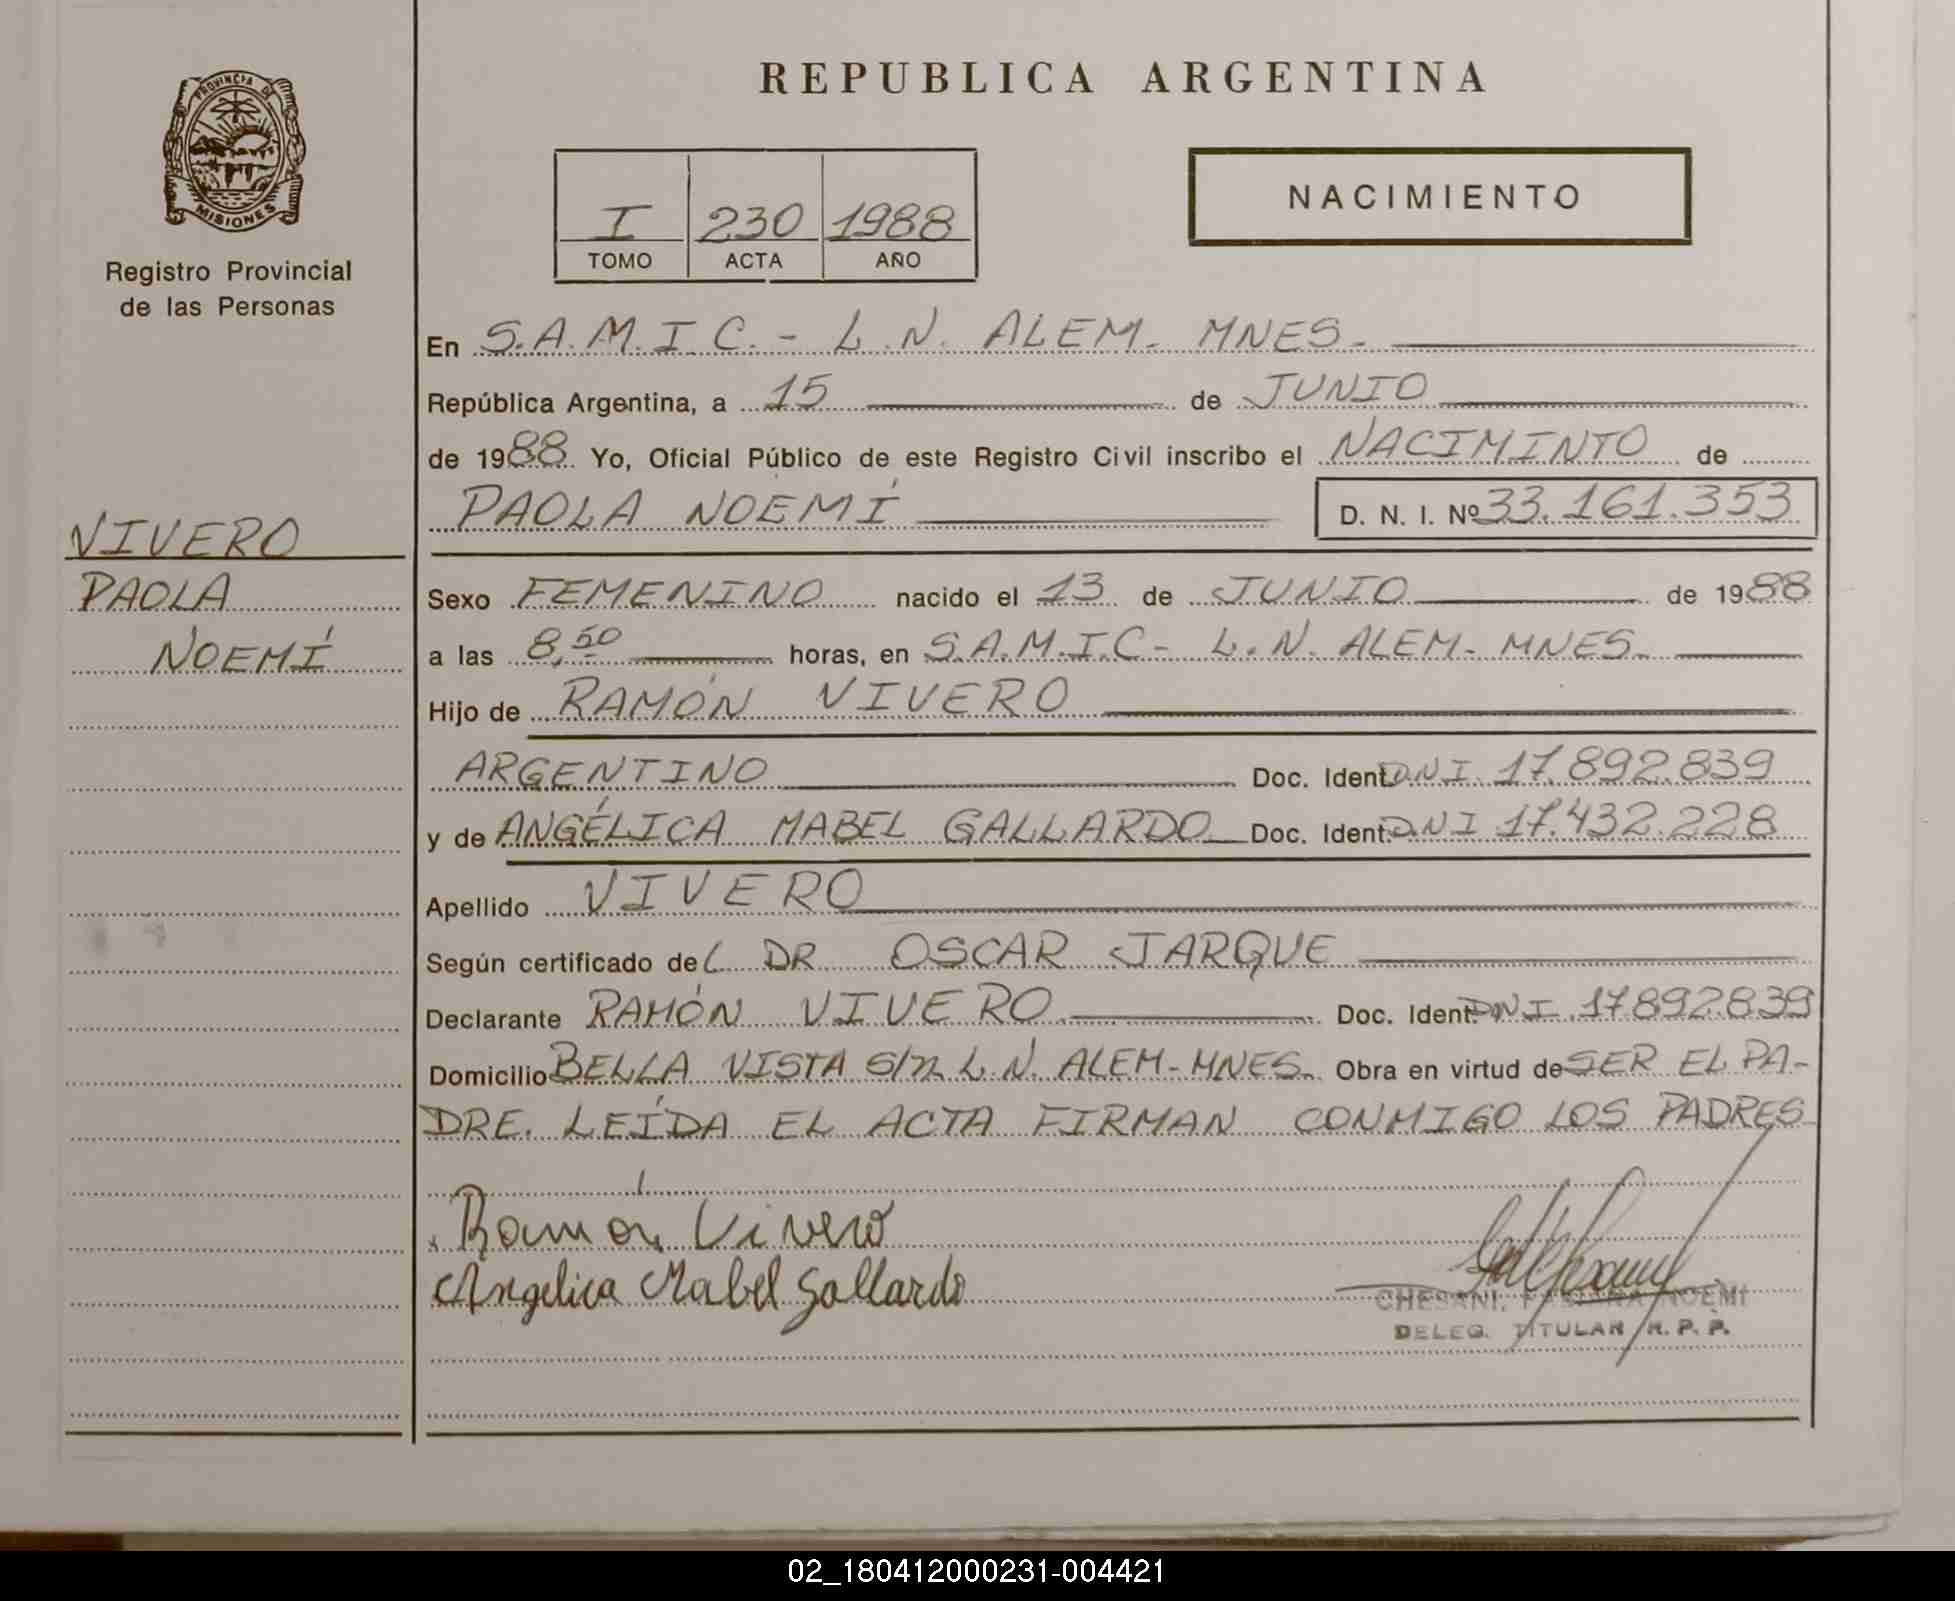 PROVINCIA DE
MISIONES
Registro Provincial
de las Personas
VIVERO
PAOLA
NOEMÍ
REPUBLICA ARGENTINA
I 230 1988
TOMO ACTA AÑO
NACIMIENTO
En S.A.M.I.C. - L.N. ALEM. MNES.
República Argentina, a 15 de JUNIO
de 1988. Yo, Oficial Público de este Registro Civil inscribo el NACIMINTO de
PAOLA NOEMÍ D. N. I. Nº 33.161.353
Sexo FEMENINO nacido el 13 de JUNIO de 1988
a las 8,50 horas, en S.A.M.I.C - L.N. ALEM. MNES.
Hijo de RAMÓN VIVERO
ARGENTINO Doc. Ident. DNI. 17.892.839
y de ANGÉLICA MABEL GALLARDO Doc. Ident. DNI 17.432.228
Apellido VIVERO
Según certificado del DR OSCAR JARQUE
Declarante RAMÓN VIVERO Doc. Ident. DNI. 17892.839
Domicilio BELLA VISTA S/n L.N. ALEM - MNES. Obra en virtud de SER EL PA-
DRE. LEÍDA EL ACTA FIRMAN CONMIGO LOS PADRES
Ramón Vivero
Angelica Mabel Gallardo
CHESANI, NOEMI
DELEG. TITULAR R. P. P.
02_180412000231-004421